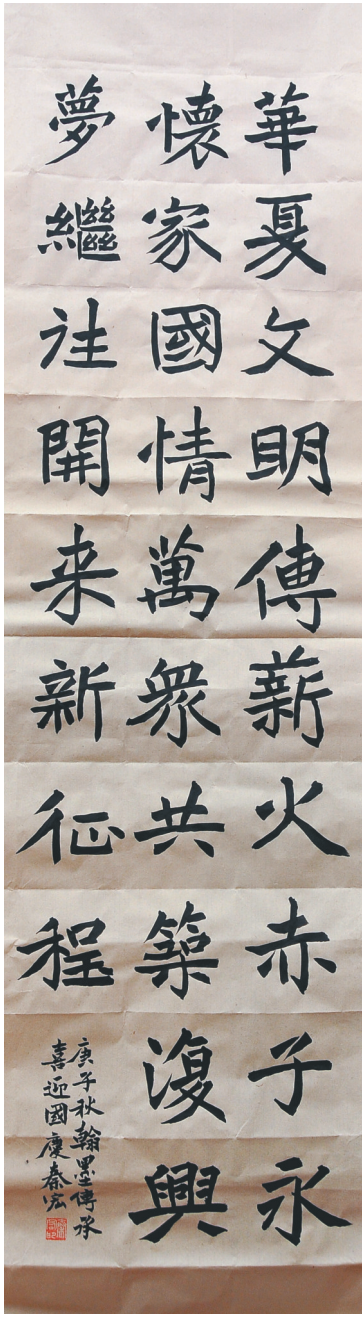 華夏文明傳薪火赤子永
懷家國情萬衆共築復興
夢繼往開来新征程
庚子秋翰墨傳承
喜迎國慶秦宏